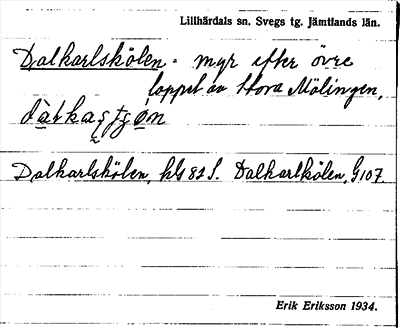 Lillhärdals sn. Svegs tg. Jämtlands län.
Dalkarlskölen - myr efter övre
loppet av Stora Mälingen,
Dalkarlskölen, kG 82 S. Dalkarlkölen, G 107.
Erik Eriksson 1934.